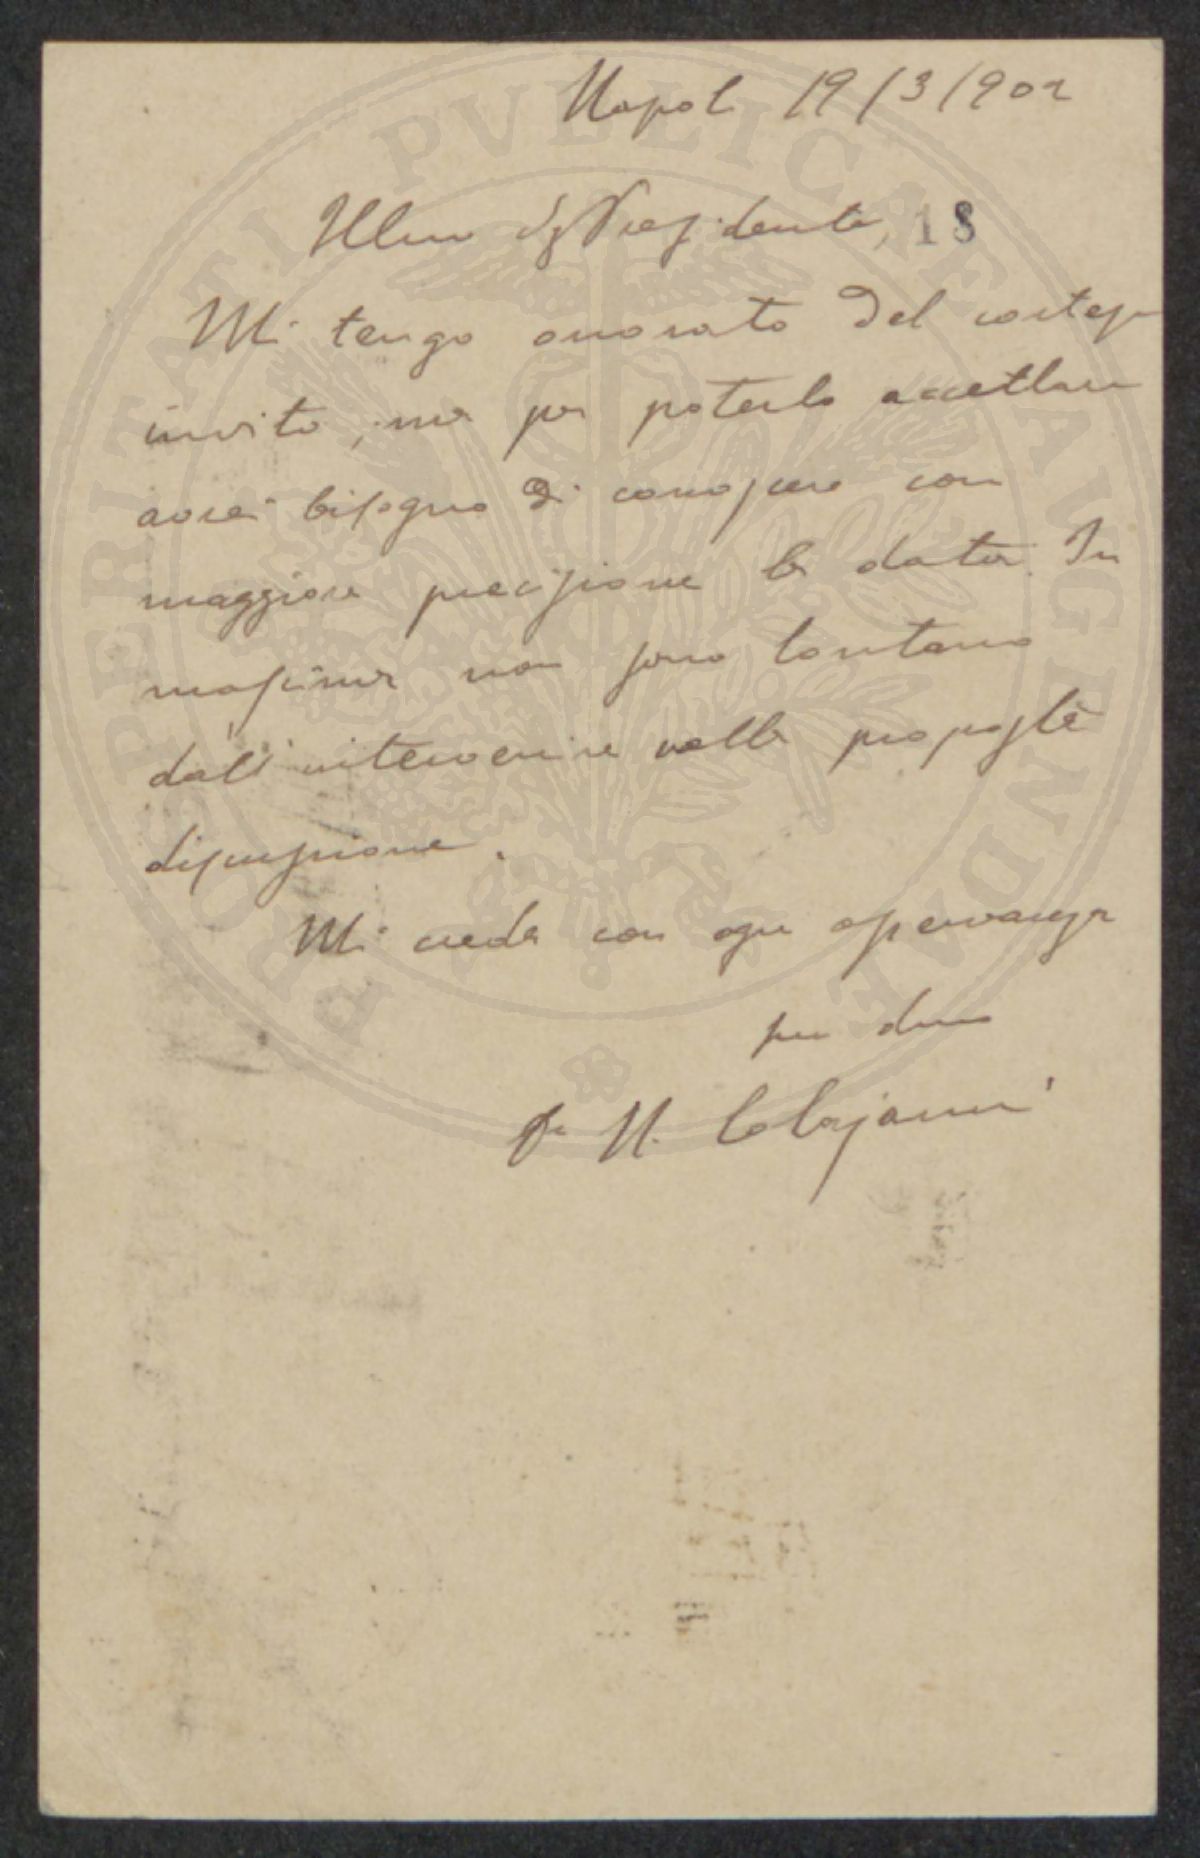 Napoli 19/3/902
Illmo Sig Presidente, 18
Mi tengo onorato del cortese
invito, ma per poterlo accettare
avrei bisogno di conoscere con
maggiore precisione la data. In
massima non sono lontano
dall'intervenire nella proposta
discussione.
Mi creda con ogni osservanza
suo dmo
Dr N. Colajanni
PROSPERITATI PVBLICAE AVGENDAE